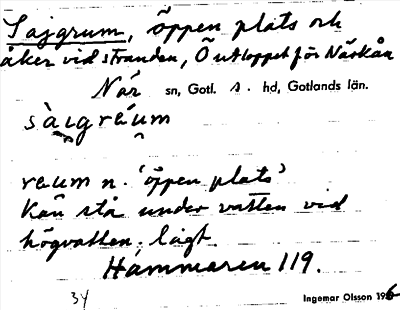 Sajgrum, öppen plats och
åker vid stranden, Ö utloppet för Närkån
När sn, Gotl. s. hd, Gotlands län.
sàigréum
reum n. 'öppen plats'
Kan stå under vatten vid
högvatten; lågt.
Hammaren 119.
34 Ingemar Olsson 1966